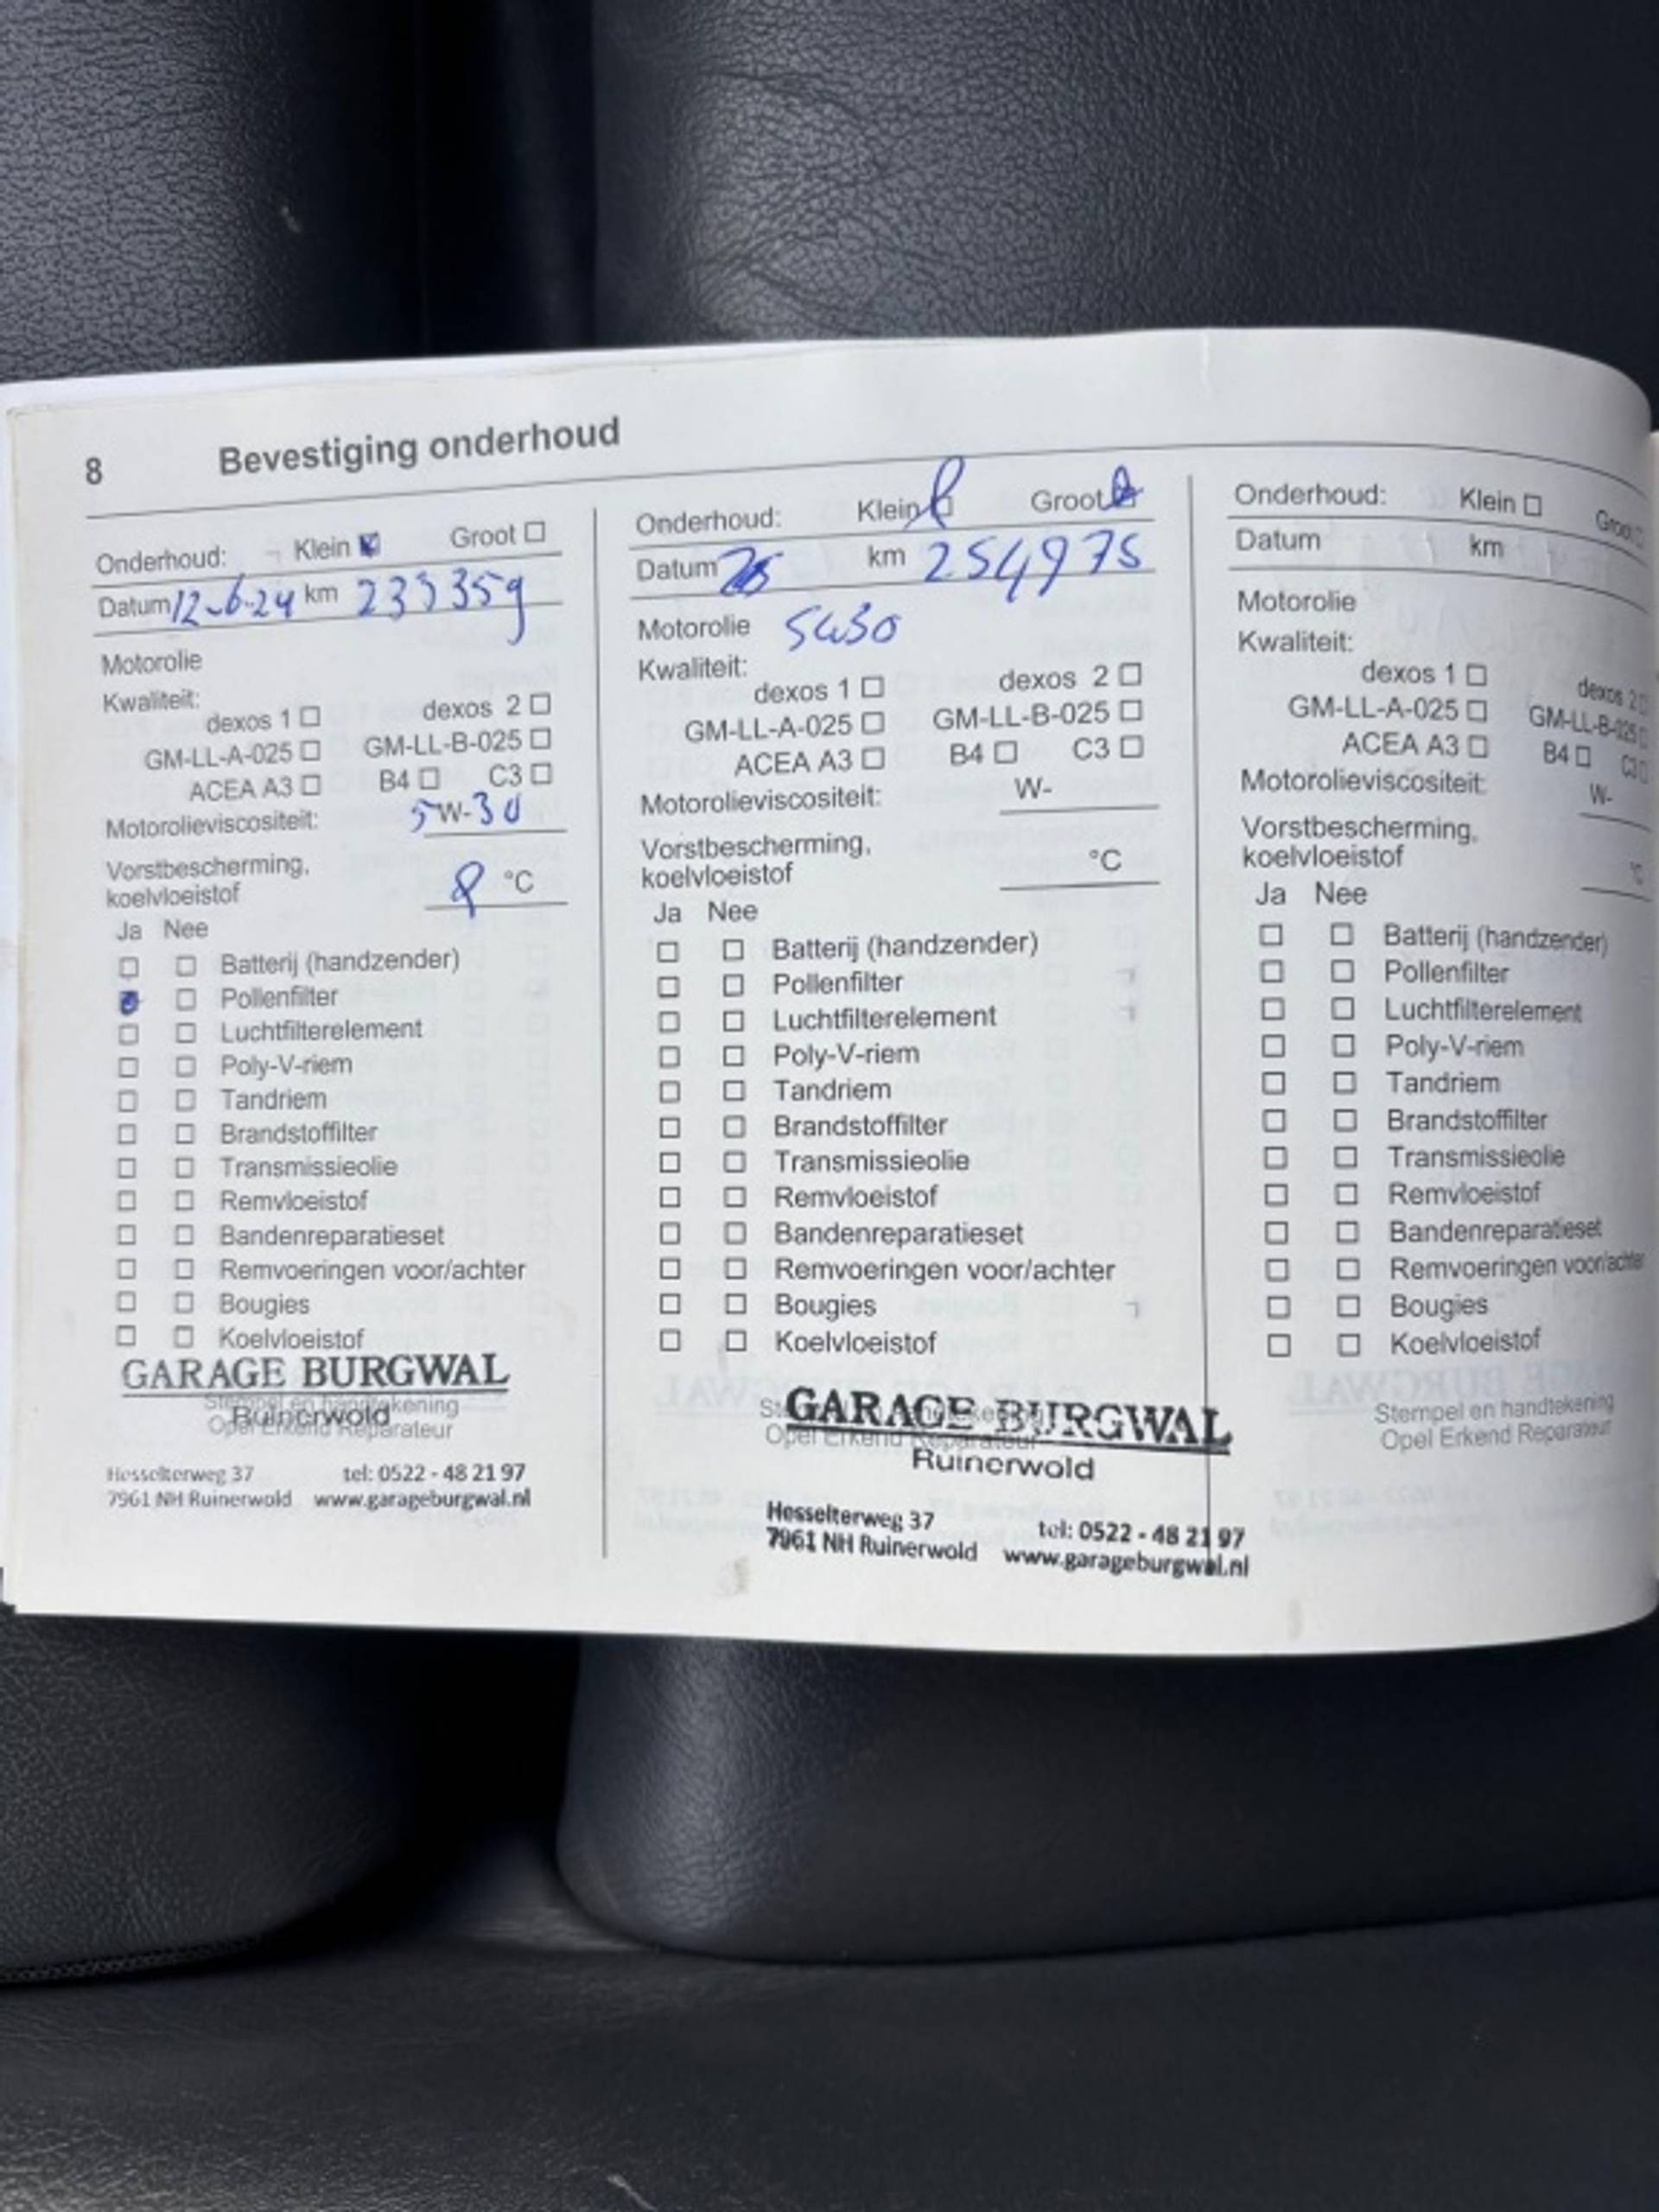 8 Bevestiging onderhoud
Onderhoud: Klein Groot
Datum 12-6-24 km 233359
Motorolie
Kwaliteit:
dexos 1 dexos 2
GM-LL-A-025 GM-LL-B-025
ACEA A3 B4 C3
Motorolieviscositeit: 5W-30
Vorstbescherming,
koelvloeistof °C
Ja Nee
Batterij (handzender)
Pollenfilter
Luchtfilterelement
Poly-V-riem
Tandriem
Brandstoffilter
Transmissieolie
Remvloeistof
Bandenreparatieset
Remvoeringen voor/achter
Bougies
Koelvloeistof
GARAGE BURGWAL
Stempel en handtekening
Ruinerwold
Opel Erkend Reparateur
Hesselterweg 37 tel: 0522 - 48 21 97
7961 NH Ruinerwold www.garageburgwal.nl
Onderhoud: Klein Groot
Datum km 254975
Motorolie 5W30
Kwaliteit:
dexos 1 dexos 2
GM-LL-A-025 GM-LL-B-025
ACEA A3 B4 C3
Motorolieviscositeit: W-
Vorstbescherming,
koelvloeistof °C
Ja Nee
Batterij (handzender)
Pollenfilter
Luchtfilterelement
Poly-V-riem
Tandriem
Brandstoffilter
Transmissieolie
Remvloeistof
Bandenreparatieset
Remvoeringen voor/achter
Bougies
Koelvloeistof
GARAGE BURGWAL
Opel Erkend Reparateur
Ruinerwold
Hesselterweg 37 tel: 0522 - 48 21 97
7961 NH Ruinerwold www.garageburgwal.nl
Onderhoud: Klein Groot
Datum km
Motorolie
Kwaliteit:
dexos 1 dexos 2
GM-LL-A-025 GM-LL-B-025
ACEA A3 B4 C3
Motorolieviscositeit: W-
Vorstbescherming,
koelvloeistof °C
Ja Nee
Batterij (handzender)
Pollenfilter
Luchtfilterelement
Poly-V-riem
Tandriem
Brandstoffilter
Transmissieolie
Remvloeistof
Bandenreparatieset
Remvoeringen voor/achter
Bougies
Koelvloeistof
Stempel en handtekening
Opel Erkend Reparateur